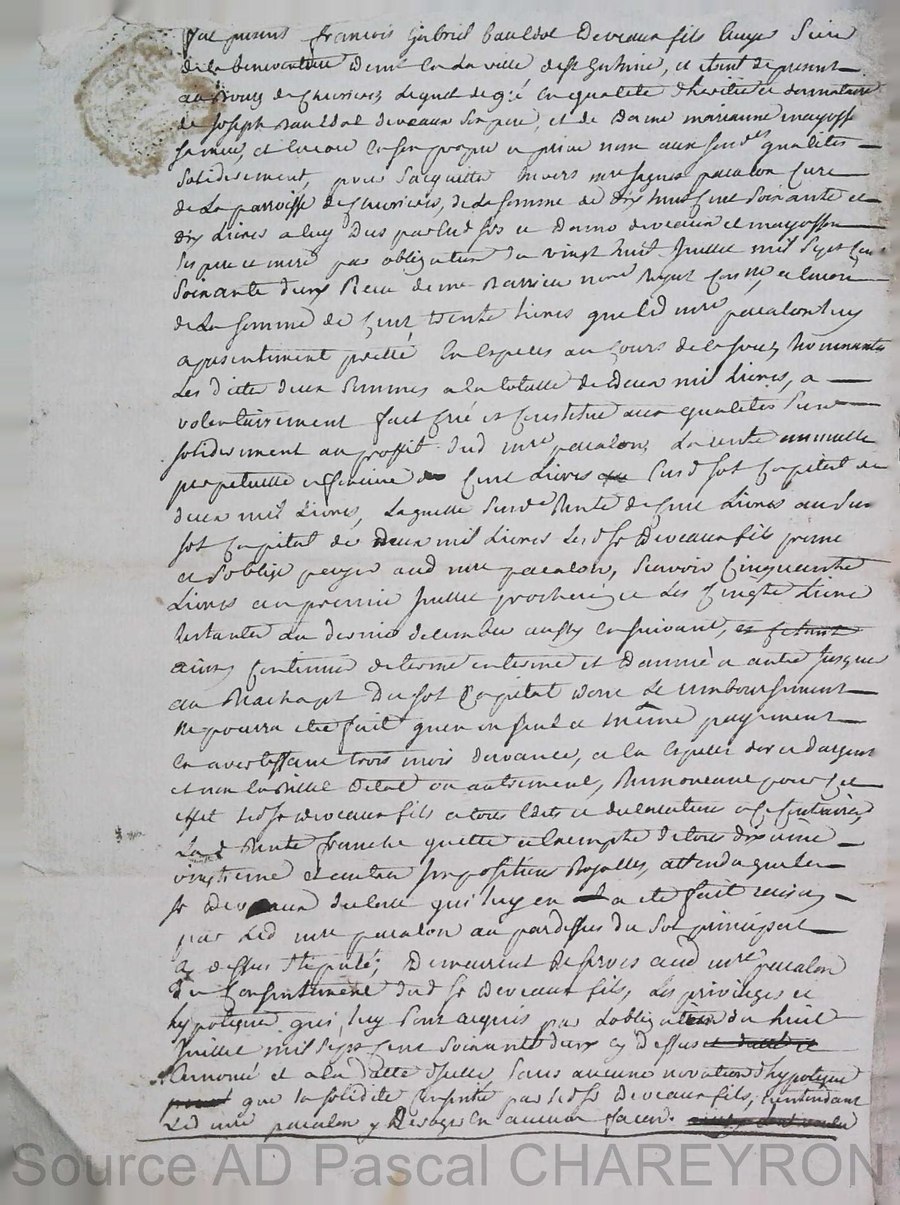 fut present françois Gabriel bauldol deveaux fils luyé Sieur
de la demt en la ville de St Estienne, et etant de present
au Bourg de Lequel de gré en qualité d'heritier et donnataire
de Joseph Bauldol deveaux Son pere, et de Dame marianne mayosson
Sa mere, et encore en Son propre et privé nom aux Susdes qualités
Solidairement, pour S'acquitter envers mre pacalon Curé
de La parroisse de de La Somme de Dix huit Cent Soixante et
dix Livres a luy Dus par Lesd Srs et Dame deveaux et mayosson
Ses pere et mere par obligation du vingt huit Juillet mil Sept Cent
Soixante deux Receu de me Barrieu nore Royal et encore
de La Somme de Cent trente Livres que led mre pacalon luy
a presentement pretté En Especes au Cours de
Les d'ittes deux Sommes a la totalle de deux mil Livres, a
volontairement fait Créé et Constitué aux qualités Susd
Solidairement au proffit dud mre pacalon, La rente annuelle
perpetuelle et fonciere de Cent Livres Susd Sot Capital de
deux mil Livres, Laquelle Susde Rente de Cent Livres audit
Sot Capital de deux mil Livres Led Sr Deveaux fils promet
et S'oblige payer aud mre pacalon, Scavoir Cinquante
Livres au premier Juillet prochain, et Les Cinqte Livres
Restantes Au dernier decembre aussy En suivant, et
ainsy Continuer de terme en terme et d'année a autre Jusque
au Rachapt Du Sot Capital dont Le remboursement
ne pourra etre fait qu'en un Seul et même payement
En avertissant trois mois davance, et en Especes d'or et d'argent
et non en Billet d'etat ou autrement, Renonceant pour Cet
effet Led Sr deveaux fils a tous Edits et declarations a Ce Contraires,
La d Rente franche quitte et Exempte de tous dixieme
vingtieme et autres Impositions Royalles, attendu que le
Sr Deveaux qui luy en a eté fait
par Led mre pacalon au pardessus du Sot principal
Cy dessus Stipulé; Demeurent Reservés aud mre pacalon
du Consentement dud Sr Deveaux fils, Les privileges et
hypoteque qui luy Sont acquis par L'obligation du huit
Juillet mil Sept Cent Soixante deux Cy dessus
Ennoncé et a la datte d'Icelle Sans aucune novation d'hypoteque
que la Solidité par Led Sr Deveaux fils, n'entendant
Led mre pacalon y Deroger En aucune facon.
Source AD Pascal CHAREYRON